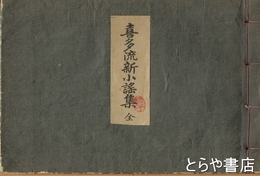 喜多流新小謡集 全
とらや書店